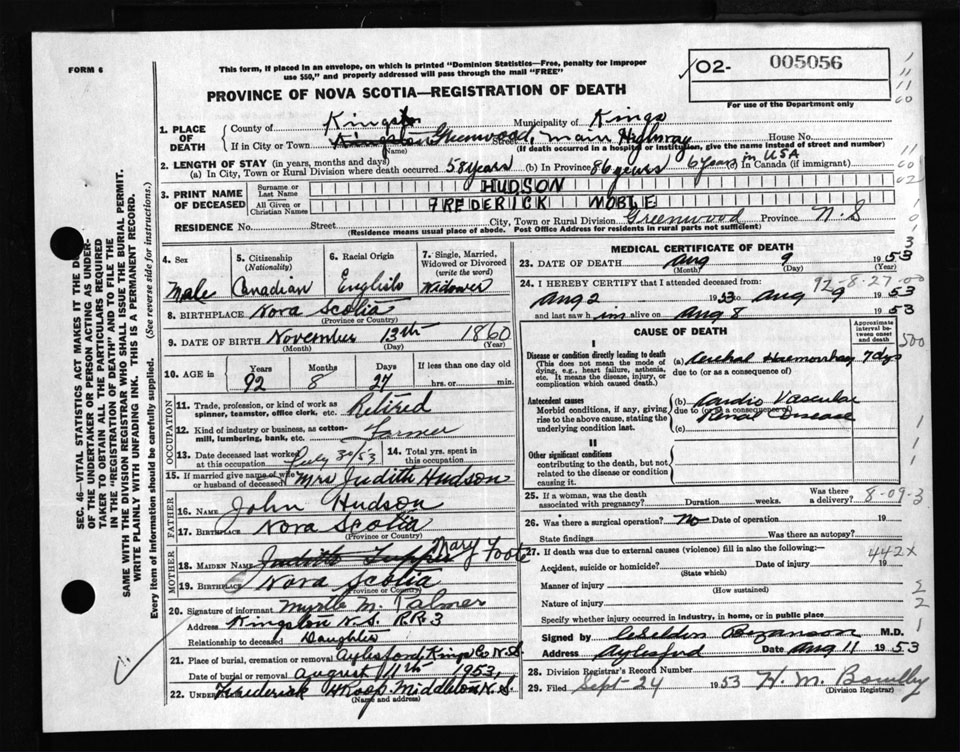 FORM 6
This form, if placed in an envelope, on which is printed "Dominion Statistics—Free, penalty for improper
use $50," and properly addressed will pass through the mail "FREE"
02- 005056
For use of the Department only
PROVINCE OF NOVA SCOTIA—REGISTRATION OF DEATH
1. PLACE OF DEATH
County of Kings Municipality of Kings
If in City or Town Kingston Greenwood, Street Main Highway House No.
(Name) (If death occurred in a hospital or institution, give the name instead of street and number)
2. LENGTH OF STAY (in years, months and days)
(a) In City, Town or Rural Division where death occurred 58 years (b) In Province 86 years 6 years in USA (c) In Canada (if immigrant)
3. PRINT NAME OF DECEASED
Surname or Last Name HUDSON
All Given or Christian Names FREDERICK NOBLE
RESIDENCE No. Street City, Town or Rural Division Greenwood Province N.S
(Residence means usual place of abode. Post Office Address for residents in rural parts not sufficient)
4. Sex Male
5. Citizenship (Nationality) Canadian
6. Racial Origin English
7. Single, Married, Widowed or Divorced (write the word) Widower
8. BIRTHPLACE Nova Scotia
(Province or Country)
9. DATE OF BIRTH November 13th 1860
(Month) (Day) (Year)
10. AGE in Years Months Days If less than one day old
92 8 27 hrs. or min.
OCCUPATION
11. Trade, profession, or kind of work as spinner, teamster, office clerk, etc. Retired
12. Kind of industry or business, as cotton-mill, lumbering, bank, etc. Farmer
13. Date deceased last worked at this occupation July 30/53
14. Total yrs. spent in this occupation
15. If married give name of wife or husband of deceased Mrs Judith Hudson
FATHER
16. NAME John Hudson
17. BIRTHPLACE Nova Scotia
(Province or Country)
MOTHER
18. MAIDEN NAME Judith Tupper Mary Foote
19. BIRTHPLACE Nova Scotia
(Province or Country)
20. Signature of informant Myrtle M. Palmer
Address Kingston N.S. R.R.3
Relationship to deceased Daughter
21. Place of burial, cremation or removal Aylesford, Kings Co N.S.
Date of burial or removal August 11th 1953,
22. Undertaker Frederick Middleton N.S.
(Name and address)
MEDICAL CERTIFICATE OF DEATH
23. DATE OF DEATH Aug 9 1953
(Month) (Day) (Year)
92-8-27-00
24. I HEREBY CERTIFY that I attended deceased from
Aug 2 1953 to Aug 9 1953
and last saw him alive on Aug 8 1953
CAUSE OF DEATH
Approximate interval between onset and death
I
Disease or condition directly leading to death
(This does not mean the mode of dying, e.g., heart failure, asthenia, etc. It means the disease, injury, or complication which caused death.)
(a) Cerebral Haemorrhage 7 dys
due to (or as a consequence of)
Antecedent causes
Morbid conditions, if any, giving rise to the above cause, stating the underlying condition last.
(b) Cardio Vascular
due to (or as a consequence of)
Renal Disease
(c)
II
Other significant conditions
contributing to the death, but not related to the disease or condition causing it.
25. If a woman, was the death associated with pregnancy? Duration weeks. Was there a delivery? 8-09-3
26. Was there a surgical operation? No Date of operation 19
State findings Was there an autopsy?
27. If death was due to external causes (violence) fill in also the following:— 442X
Accident, suicide or homicide? Date of injury 19
(State which)
Manner of injury
(How sustained)
Nature of injury
Specify whether injury occurred in industry, in home, or in public place
Signed by Bezanson M.D.
Address Aylesford Date Aug 11 1953
28. Division Registrar's Record Number
29. Filed Sept-24 1953 H. M. Bowlby
(Division Registrar)
SEC. 46—VITAL STATISTICS ACT MAKES IT THE DUTY
OF THE UNDERTAKER OR PERSON ACTING AS UNDER-
TAKER TO OBTAIN ALL THE PARTICULARS REQUIRED
IN THE "REGISTRATION OF DEATH" AND TO FILE THE
SAME WITH THE DIVISION REGISTRAR WHO SHALL ISSUE THE BURIAL PERMIT.
WRITE PLAINLY WITH UNFADING INK. THIS IS A PERMANENT RECORD.
Every item of information should be carefully supplied. (See reverse side for instructions.)